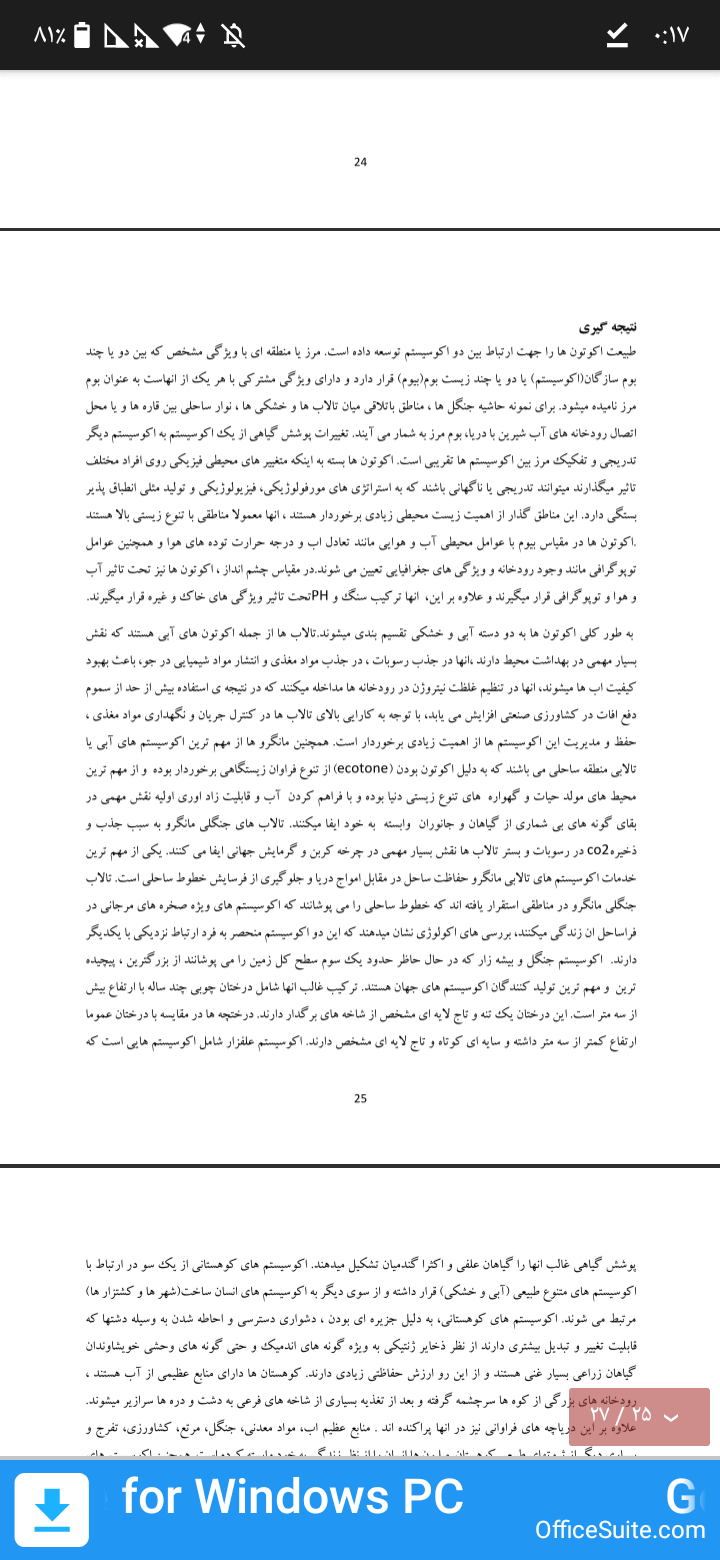 ۸۱٪ 4 ۰:۱۷
24
نتیجه گیری
طبیعت اکوتون ها را جهت ارتباط بین دو اکوسیستم توسعه داده است. مرز یا منطقه ای با ویژگی مشخص که بین دو یا چند
بوم سازگان(اکوسیستم) یا دو یا چند زیست بوم(بیوم) قرار دارد و دارای ویژگی مشترکی با هر یک از انهاست به عنوان بوم
مرز نامیده میشود. برای نمونه حاشیه جنگل ها ، مناطق باتلاقی میان تالاب ها و خشکی ها ، نوار ساحلی بین قاره ها و یا محل
اتصال رودخانه های آب شیرین با دریا، بوم مرز به شمار می آیند. تغییرات پوشش گیاهی از یک اکوسیستم به اکوسیستم دیگر
تدریجی و تفکیک مرز بین اکوسیستم ها تقریبی است. اکوتون ها بسته به اینکه متغییر های محیطی فیزیکی روی افراد مختلف
تاثیر میگذارند میتوانند تدریجی یا ناگهانی باشند که به استراتژی های مورفولوژیکی، فیزیولوژیکی و تولید مثلی انطباق پذیر
بستگی دارد. این مناطق گذار از اهمیت زیست محیطی زیادی برخوردار هستند ، انها معمولا مناطقی با تنوع زیستی بالا هستند
.اکوتون ها در مقیاس بیوم با عوامل محیطی آب و هوایی مانند تعادل اب و درجه حرارت توده های هوا و همچنین عوامل
توپوگرافی مانند وجود رودخانه و ویژگی های جغرافیایی تعیین می شوند.در مقیاس چشم انداز ، اکوتون ها نیز تحت تاثیر آب
و هوا و توپوگرافی قرار میگیرند و علاوه بر این، انها ترکیب سنگ و PHتحت تاثیر ویژگی های خاک و غیره قرار میگیرند.
به طور کلی اکوتون ها به دو دسته آبی و خشکی تقسیم بندی میشوند.تالاب ها از جمله اکوتون های آبی هستند که نقش
بسیار مهمی در بهداشت محیط دارند ،انها در جذب رسوبات ، در جذب مواد مغذی و انتشار مواد شیمیایی در جو، باعث بهبود
کیفیت اب ها میشوند، انها در تنظیم غلظت نیتروژن در رودخانه ها مداخله میکنند که در نتیجه ی استفاده بیش از حد از سموم
دفع افات در کشاورزی صنعتی افزایش می یابد، با توجه به کارایی بالای تالاب ها در کنترل جریان و نگهداری مواد مغذی ،
حفظ و مدیریت این اکوسیستم ها از اهمیت زیادی برخوردار است. همچنین مانگرو ها از مهم ترین اکوسیستم های آبی یا
تالابی منطقه ساحلی می باشند که به دلیل اکوتون بودن (ecotone) از تنوع فراوان زیستگاهی برخوردار بوده و از مهم ترین
محیط های مولد حیات و گهواره های تنوع زیستی دنیا بوده و با فراهم کردن آب و قابلیت زاد اوری اولیه نقش مهمی در
بقای گونه های بی شماری از گیاهان و جانوران وابسته به خود ایفا میکنند. تالاب های جنگلی مانگرو به سبب جذب و
ذخیره co2 در رسوبات و بستر تالاب ها نقش بسیار مهمی در چرخه کربن و گرمایش جهانی ایفا می کنند. یکی از مهم ترین
خدمات اکوسیستم های تالابی مانگرو حفاظت ساحل در مقابل امواج دریا و جلوگیری از فرسایش خطوط ساحلی است. تالاب
جنگلی مانگرو در مناطقی استقرار یافته اند که خطوط ساحلی را می پوشانند که اکوسیستم های ویژه صخره های مرجانی در
فراساحل ان زندگی میکنند، بررسی های اکولوژی نشان میدهند که این دو اکوسیستم منحصر به فرد ارتباط نزدیکی با یکدیگر
دارند. اکوسیستم جنگل و بیشه زار که در حال حاظر حدود یک سوم سطح کل زمین را می پوشانند از بزرگترین ، پیچیده
ترین و مهم ترین تولید کنندگان اکوسیستم های جهان هستند. ترکیب غالب انها شامل درختان چوبی چند ساله با ارتفاع بیش
از سه متر است. این درختان یک تنه و تاج لایه ای مشخص از شاخه های برگدار دارند. درختچه ها در مقایسه با درختان عموما
ارتفاع کمتر از سه متر داشته و سایه ای کوتاه و تاج لایه ای مشخص دارند. اکوسیستم علفزار شامل اکوسیستم هایی است که
25
پوشش گیاهی غالب انها را گیاهان علفی و اکثرا گندمیان تشکیل میدهند. اکوسیستم های کوهستانی از یک سو در ارتباط با
اکوسیستم های متنوع طبیعی (آبی و خشکی) قرار داشته و از سوی دیگر به اکوسیستم های انسان ساخت(شهر ها و کشتزار ها)
مرتبط می شوند. اکوسیستم های کوهستانی، به دلیل جزیره ای بودن ، دشواری دسترسی و احاطه شدن به وسیله دشتها که
قابلیت تغییر و تبدیل بیشتری دارند از نظر ذخایر ژنتیکی به ویژه گونه های اندمیک و حتی گونه های وحشی خویشاوندان
گیاهان زراعی بسیار غنی هستند و از این رو ارزش حفاظتی زیادی دارند. کوهستان ها دارای منابع عظیمی از آب هستند ،
رودخانه های بزرگی از کوه ها سرچشمه گرفته و بعد از تغذیه بسیاری از شاخه های فرعی به دشت و دره ها سرازیر میشوند.
علاوه بر این دریاچه های فراوانی نیز در انها پراکنده اند . منابع عظیم اب، مواد معدنی، جنگل، مرتع، کشاورزی، تفرج و
۲۵ / ۲۷
for Windows PC G
OfficeSuite.com